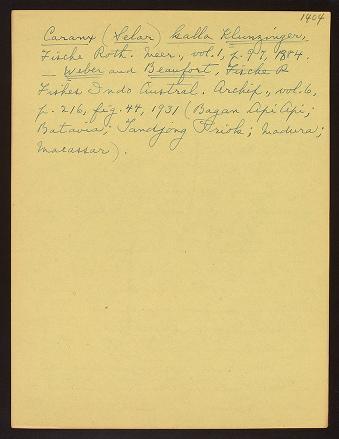 1904
Caranx (Selar) kalla Klunzinger,
Fische Roth. Meer., vol. 1, p. 97, 1884.
— Weber and Beaufort, Fische R
Fishes Indo Austral. Archip., vol. 6,
p. 216, fig. 44, 1931 (Bagan Api Api;
Batavia; Tandjong Priok; Madura;
Macassar).